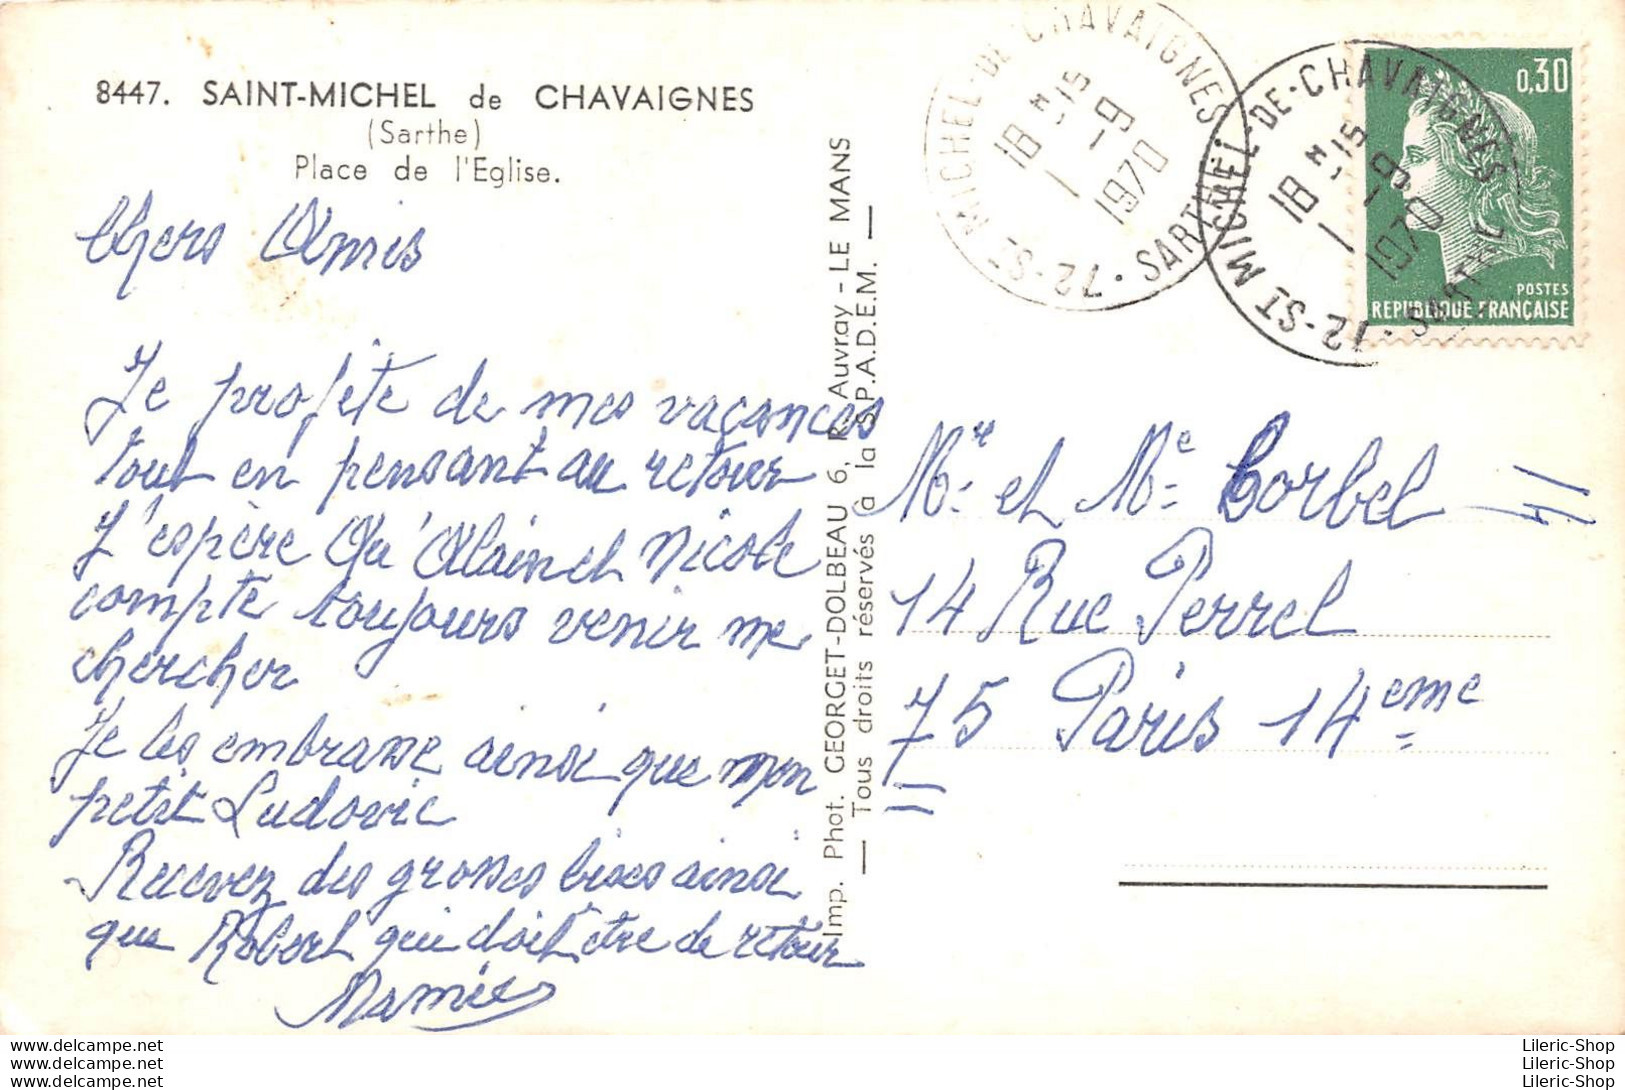 8447. SAINT-MICHEL de CHAVAIGNES
(Sarthe)
Place de l'Eglise.
Chers Amis
Je profite de mes vacances
tout en pensant au retour
J'espère Qu'Alain et Nicole
compte toujours venir me
chercher
Je les embrasse ainsi que mon
petit Ludovic
Recevez des grosses bises ainsi
que Robert qui doit être de retour
Mamie
Imp. Phot. GEORGET-DOLBEAU 6, R. Auvray - LE MANS
— Tous droits réservés à la S.P.A.D.E.M. —
72-ST MICHEL-DE-CHAVAIGNES · SARTHE
18 H 15
1 -9
1970
72-ST MICHEL-DE-CHAVAIGNES · SARTHE
18 H 15
1 -9
1970
0,30
POSTES
REPUBLIQUE FRANÇAISE
Mr et Me Corbel
14 Rue Perrel
75 Paris 14eme
www.delcampe.net
www.delcampe.net
www.delcampe.net
Lileric-Shop
Lileric-Shop
Lileric-Shop